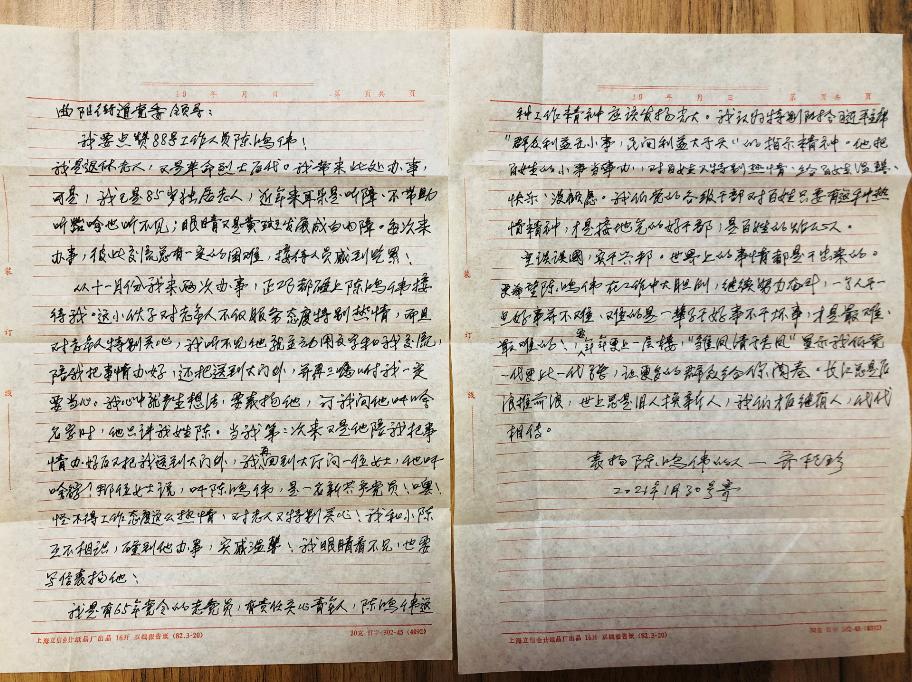 19 年 月 日 第 页共 页
曲阳街道党委领导:
我要点赞88号工作人员陈鸿伟!
我是退休老人,又是革命烈士后代。我常来此处办事,
可是,我已是85岁独居老人,近年来耳朵是听障、不带助
听器啥也听不见;眼睛又是黄斑发展成白内障。每次来
办事,彼此交流总有一定的困难,接待人员感到吃累!
从十一月份我来两次办事,正巧都碰上陈鸿伟接
待我。这小伙子对老年人不仅服务态度特别热情,而且
对老年人特别关心,我听不见他就主动用文字和我交流,
陪我把事情办好,还把送到大门外,并再三嘱咐我一定
要当心。我心中就产生想法,要表扬他,讨我问他叫啥
名字时,他只讲我姓陈。当我第二次来又是他陪我把事
情办好后又把我送到大门外,我再回到大厅问一位女士,他叫
啥?那位女士说,叫陈鸿伟,是一名新共产党员!噢!
怪不得工作态度这么热情,对老人又特别关心!我和小陈
互不相识,碰到他办事,实感温馨!我眼睛看不见,也要
写信表扬他!
我是有65年党令的老党员,有责任关心青年人,陈鸿伟这
上海立信会计纸品厂出品 16开 双线报告纸 (82.3-20)
20克 订字-302-45 (4092)
19 年 月 日 第 页共 页
种工作精神应该发扬光大。我认为特别符合习主席
“群众利益无小事,民间利益大于天”的指示精神。他把
百姓的小事当事办,对百姓又特别热情,给百姓温馨、
快乐、没顾虑。我们党的各级干部对百姓只要有这种热
情精神,才是接地气的好干部,是百姓的贴心人。
空谈误国,实干兴邦。世界上的事情都是干出来的。
更希望陈鸿伟在工作中大胆创,继续努力奋斗,一个人干一
点好事并不难,难的是一辈子干好事不干坏事,才是最难、
最难的!年年更上一层楼,“雏凤清于老凤”显示我们党
一代更比一代强,让更多的群众给你阅卷。长江总是后
浪推前浪,世上总是旧人换新人,我们才后继有人,代代
相传。
表扬陈鸿伟的人——
2021年1月30号寄
上海立信会计纸品厂出品 16开 双线报告纸 (82.3-20)
装
订
线